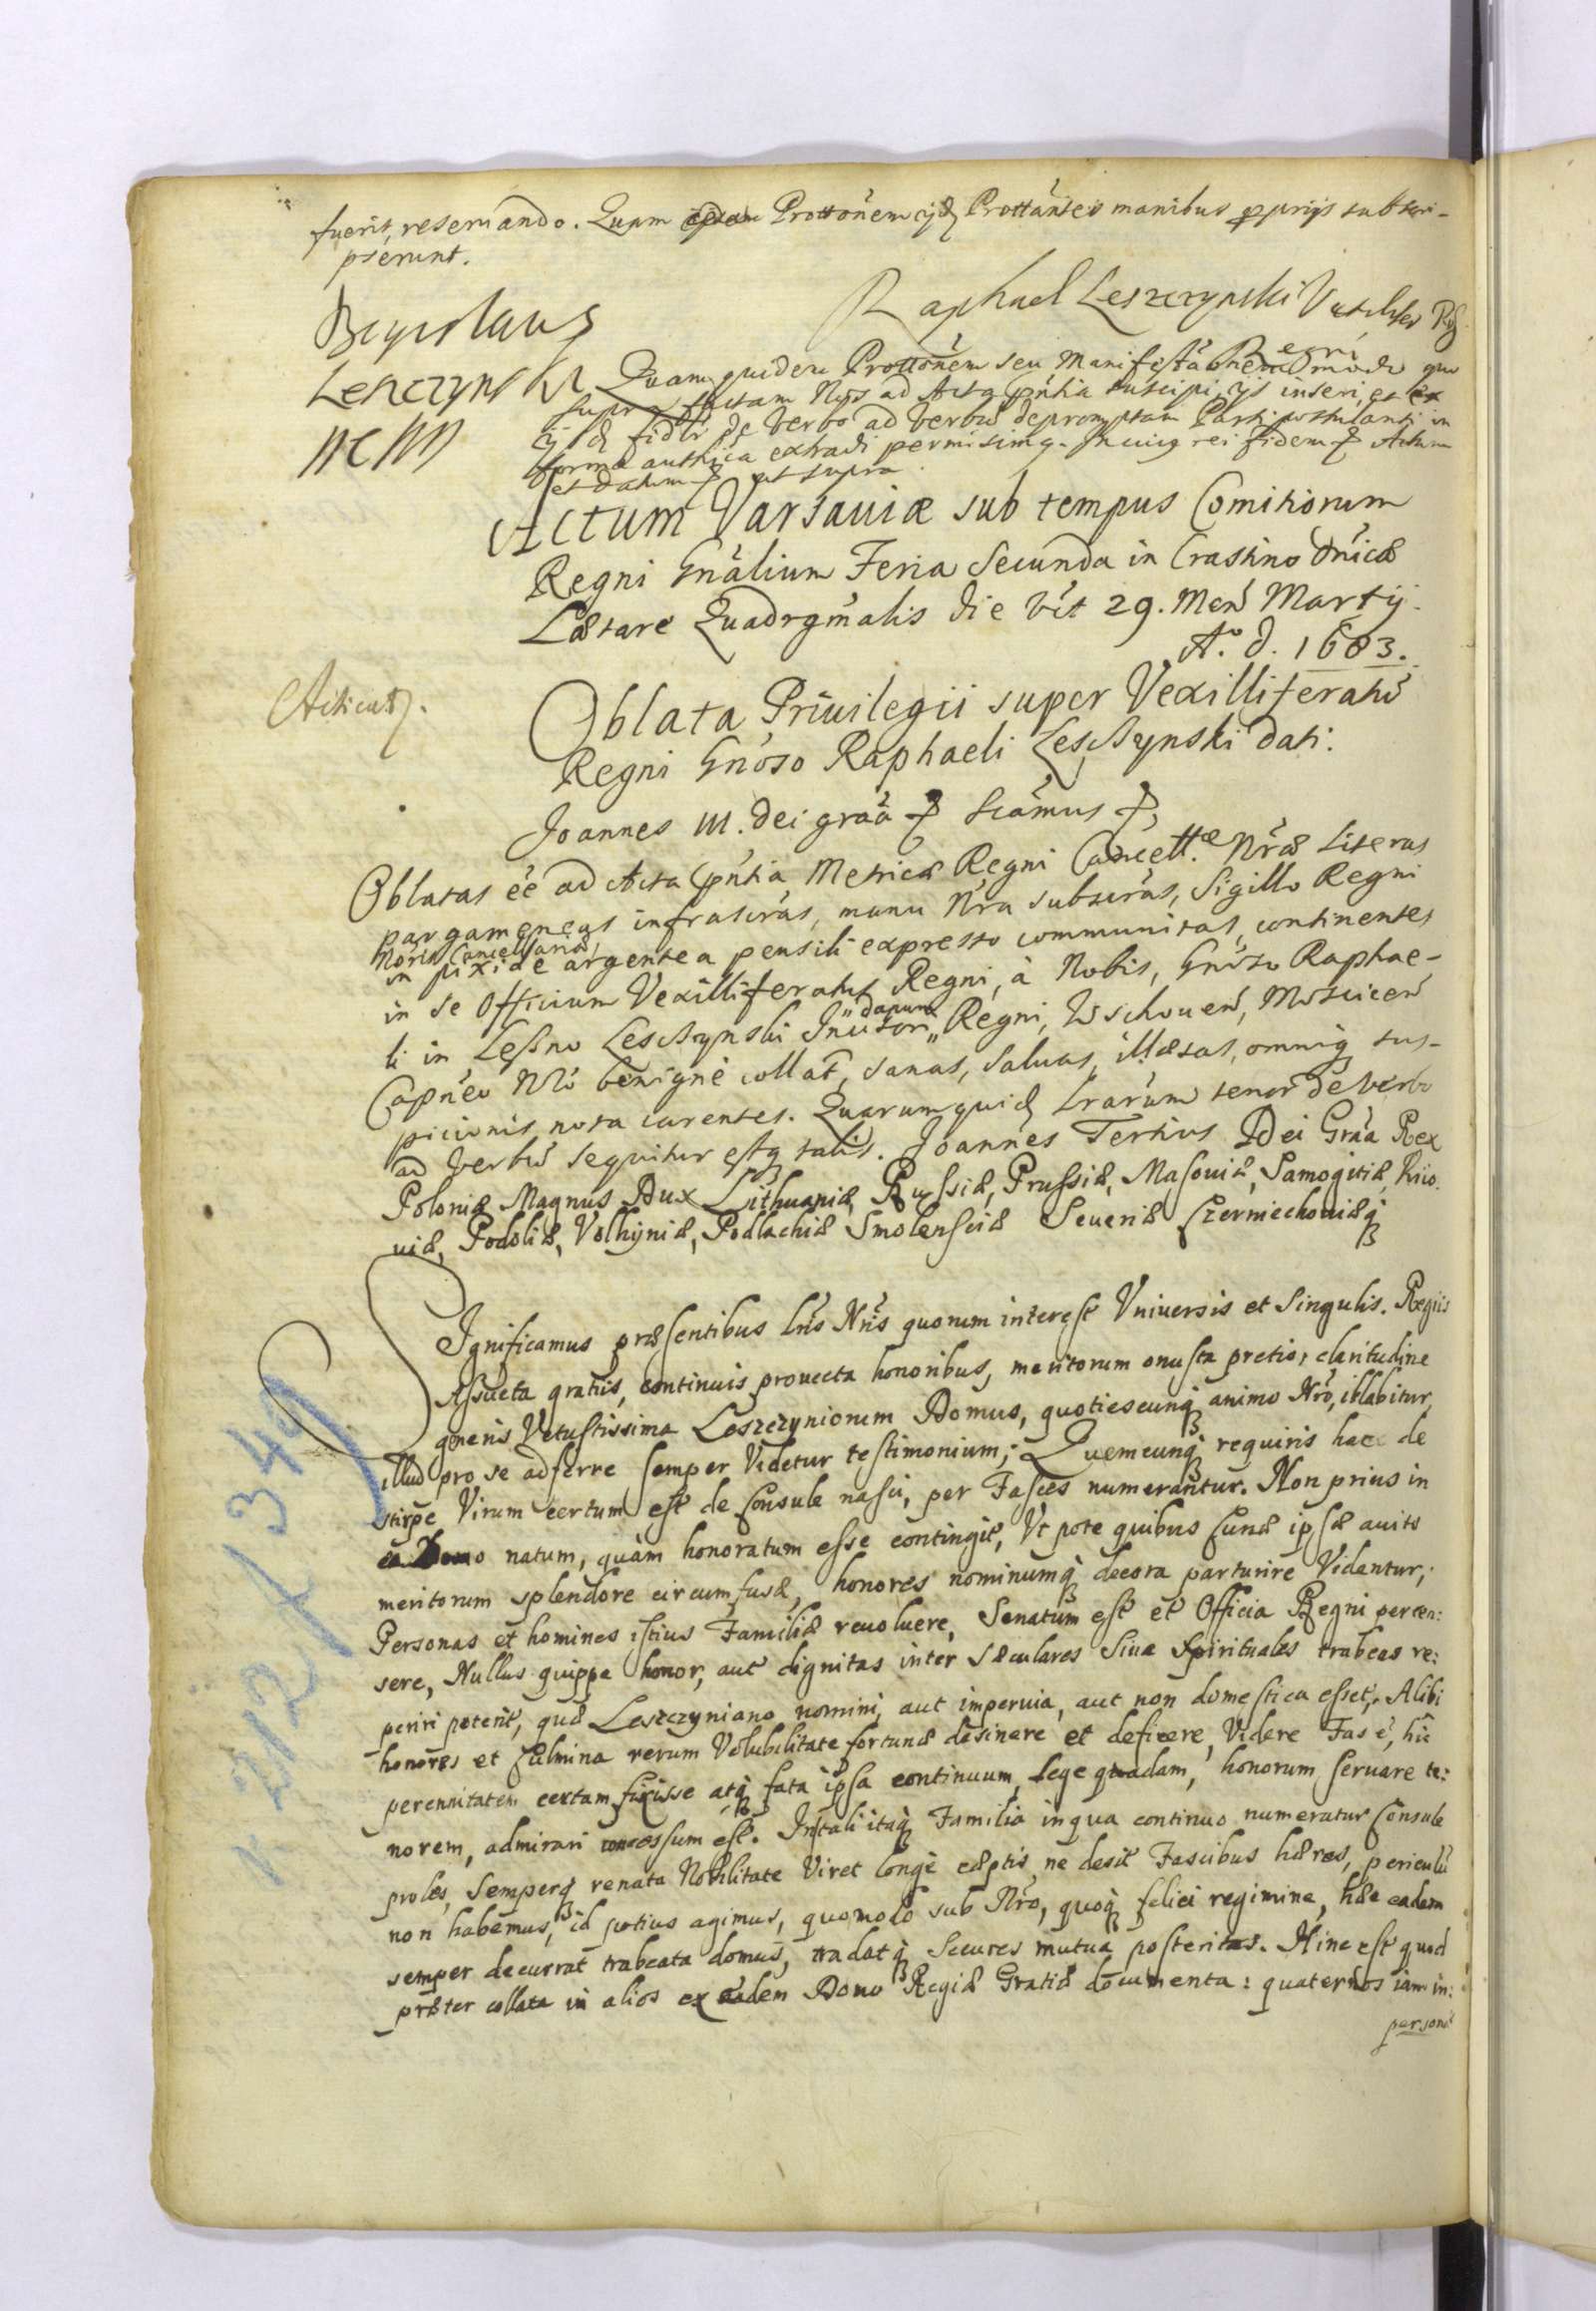 fuerit, reservando. Quam Prottõnem ijd Prottãntes manibus pprijs subscri-
pserunt.
Raphael Leszczynski Vexilifer
Regni
Boguslaus
Leszczynski
Quam quidem Prottõnem seu Manifestãonem modo quo
supra factam Nos ad Acta pñtia suscipi, ijs inseri, et ex
ijsd fidlr de verbo ad verbũ depromptam Parti postulanti in
forma authica extradi permisimq. In cuiq rei fidem Actum
et datum ut supra
Actum Varsaviæ sub tempus Comitiorum
Regni Gnãlium Feria Secunda in Crastino Dñicæ
Lætare Quadrgmalis die vćt 29. Mens Martij.
A.o d. 1683.
Acticat.
Oblata Privilegii super Vexilliferatũ
Regni Gnõso Raphaeli Leschynski dati.
Joannes III. dei grãa Sciãmus
Oblatas ẽe ad Acta pñtia Metricæ Regni Cancell.æ Nræ Literas
pargameneas infrascrãs, manu Nra subscrãs, Sigillo Regni
Moris Cancellariæ
in pixide argentea pensili expresso communitas, continentes
in se Officium Vexilliferatus Regni, à Nobis, Gnõso Raphae-
li in Leßno Leschynski Incisori Regni, Wschoven, Moscicen
dapum
Capneo Nro benignè collat, sanas, salvas, illæsas, omniq sus-
picionis nota carentes. Quarum quid Lrarũm tenor de verbo
ad verbũ sequitur estq talis. Joannes Tertius Dei Grãa Rex
Poloniæ Magnus Dux Lithuaniæ, Russiæ, Prussiæ, Masoviæ, Samogitiæ, Kiio-
viæ, Podoliæ, Volhyniæ, Podlachiæ Smolensciæ Severiæ Czerniechoviæq
Significamus præsentibus Lris Nris quorum interest Universis et Singulis. Regiis
Assueta gratiis, continuis provecta honoribus, meritorum onusta pretio, claritudine
generis Vetustissima Leszczyniorum Domus, quotiescunq animo Nro, illabitur,
illud pro se adferre semper Videtur testimonium; Quemcunq requiris hac de
stirpe Virum certum est de Consule nasci, per Fasces numerantur. Non prius in
ea Domo natum, quàm honoratum esse contingit, Ut pote quibus Cunæ ipsæ avito
meritorum splendore circumfusæ, honores nominumq decora parturire Videntur;
Personas et homines istius Familiæ revolvere, Senatum est et Officia Regni percen:
sere, Nullus quippe honor, aut dignitas inter sæculares sive Spirituales trabeas re:
periri poterit, quæ Leszczyniano nomini, aut impervia, aut non domestica esset, Alibi
honores et Culmina rerum Volubilitate fortunæ desinere et deficere, Videre Fas ẽ, hic
perennitatem certam fixisse atq fata ipsa continuum, lege quadam, honorum servare te:
norem, admirari concessum est. In tali itaq Familia in qua continuo numeratur Consule
proles, Semperq renata Nobilitate Viret longè cæptis, ne desit Fascibus hæres, periculũ
non habemus, id potius agimus, quomodo sub Nro, quoq felici regimine, hæc eadem
semper decurrat trabeata domus, tradatq Secures mutua posteritas. Hinc est quod
præter collata in alios ex eadem Domo Regiæ Gratiæ documenta: quaternos iam in:
persona
n 212 f 349